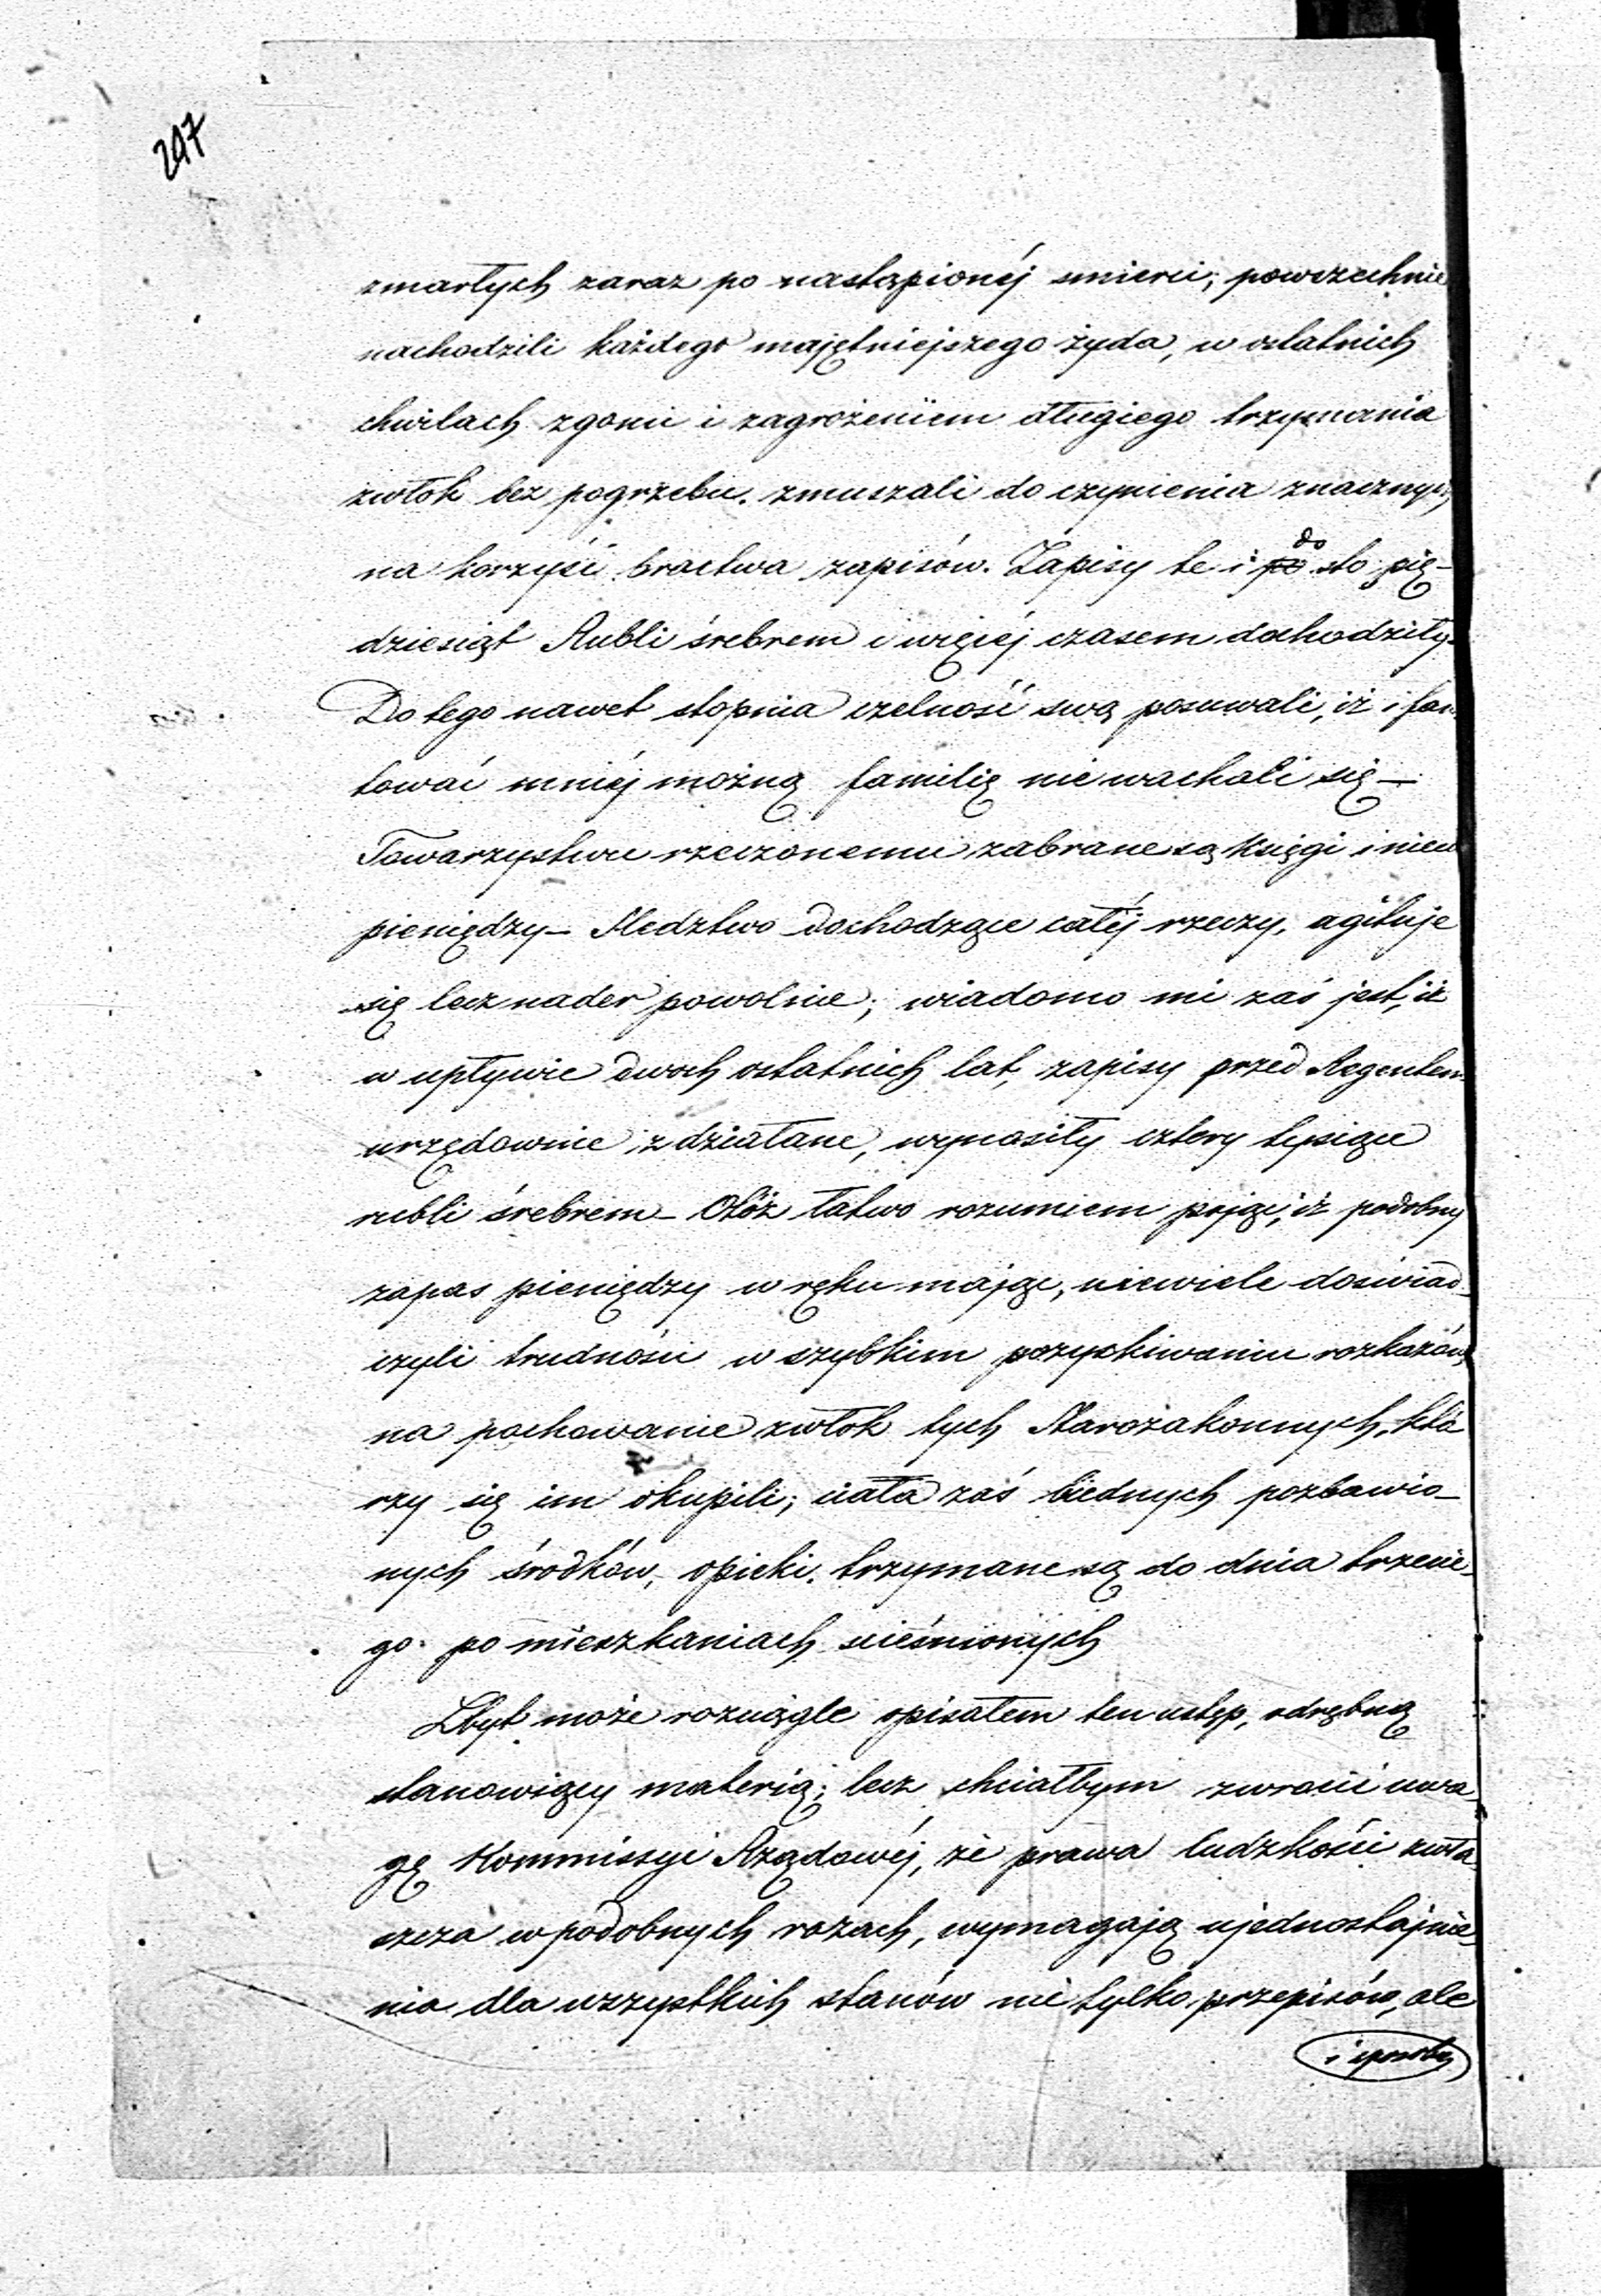 247
zmarłych zaraz po nastąpionéj smierci; powszechnie
nachodzili każdego majętniejszego żyda, w ostatnich
chwilach zgonu i zagrożeniem długiego trzymania
zwłok bez pogrzebu. zmuszali do czynienia znacznych
na korzyść bractwa zapisów. Zapisy te i do sto pię-
dziesiąt Rubli śrebrem i więcéj czasem dochodziły.
Do tego nawet stopnia czelność swą posuwali, iż i fan-
tować mniéj możną familię nie wachali się —
Towarzystwu rzeczonemu zabrane są Księgi i nieco
pieniędzy — Sledztwo dochodzące całéj rzeczy, agituje
się lecz nader powolnie; wiadomo mi zaś jest, iż
w upływie dwoch ostatnich lat, zapisy przed Regentem
urzędownie zdziałane, wynosiły cztery tysiące
rubli śrebrem — Otóż łatwo rozumiem pojąć, iż podobny
zapas pieniędzy w ręku mając, niewiele doświad-
czyli trudności w szybkim pozyskiwaniu rozkazów
na pochowanie zwłok tych Starozakonnych, któ
rzy się im okupili; ciała zaś biednych pozbawio-
nych środków, opieki. trzymane są do dnia trzecie-
go po mieszkaniach scieśnionych
Zbyt może rozciągle opisałem ten ustęp, odrębną
stanowiący materią; lecz chciałbym zwrócić uwa-
gę Kommissyi Rządowéj, że prawa ludzkości zwła-
szcza w podobnych razach, wymagają ujednostajnie-
nia dla wszystkich stanów nie tylko przepisów, ale
i sposobu